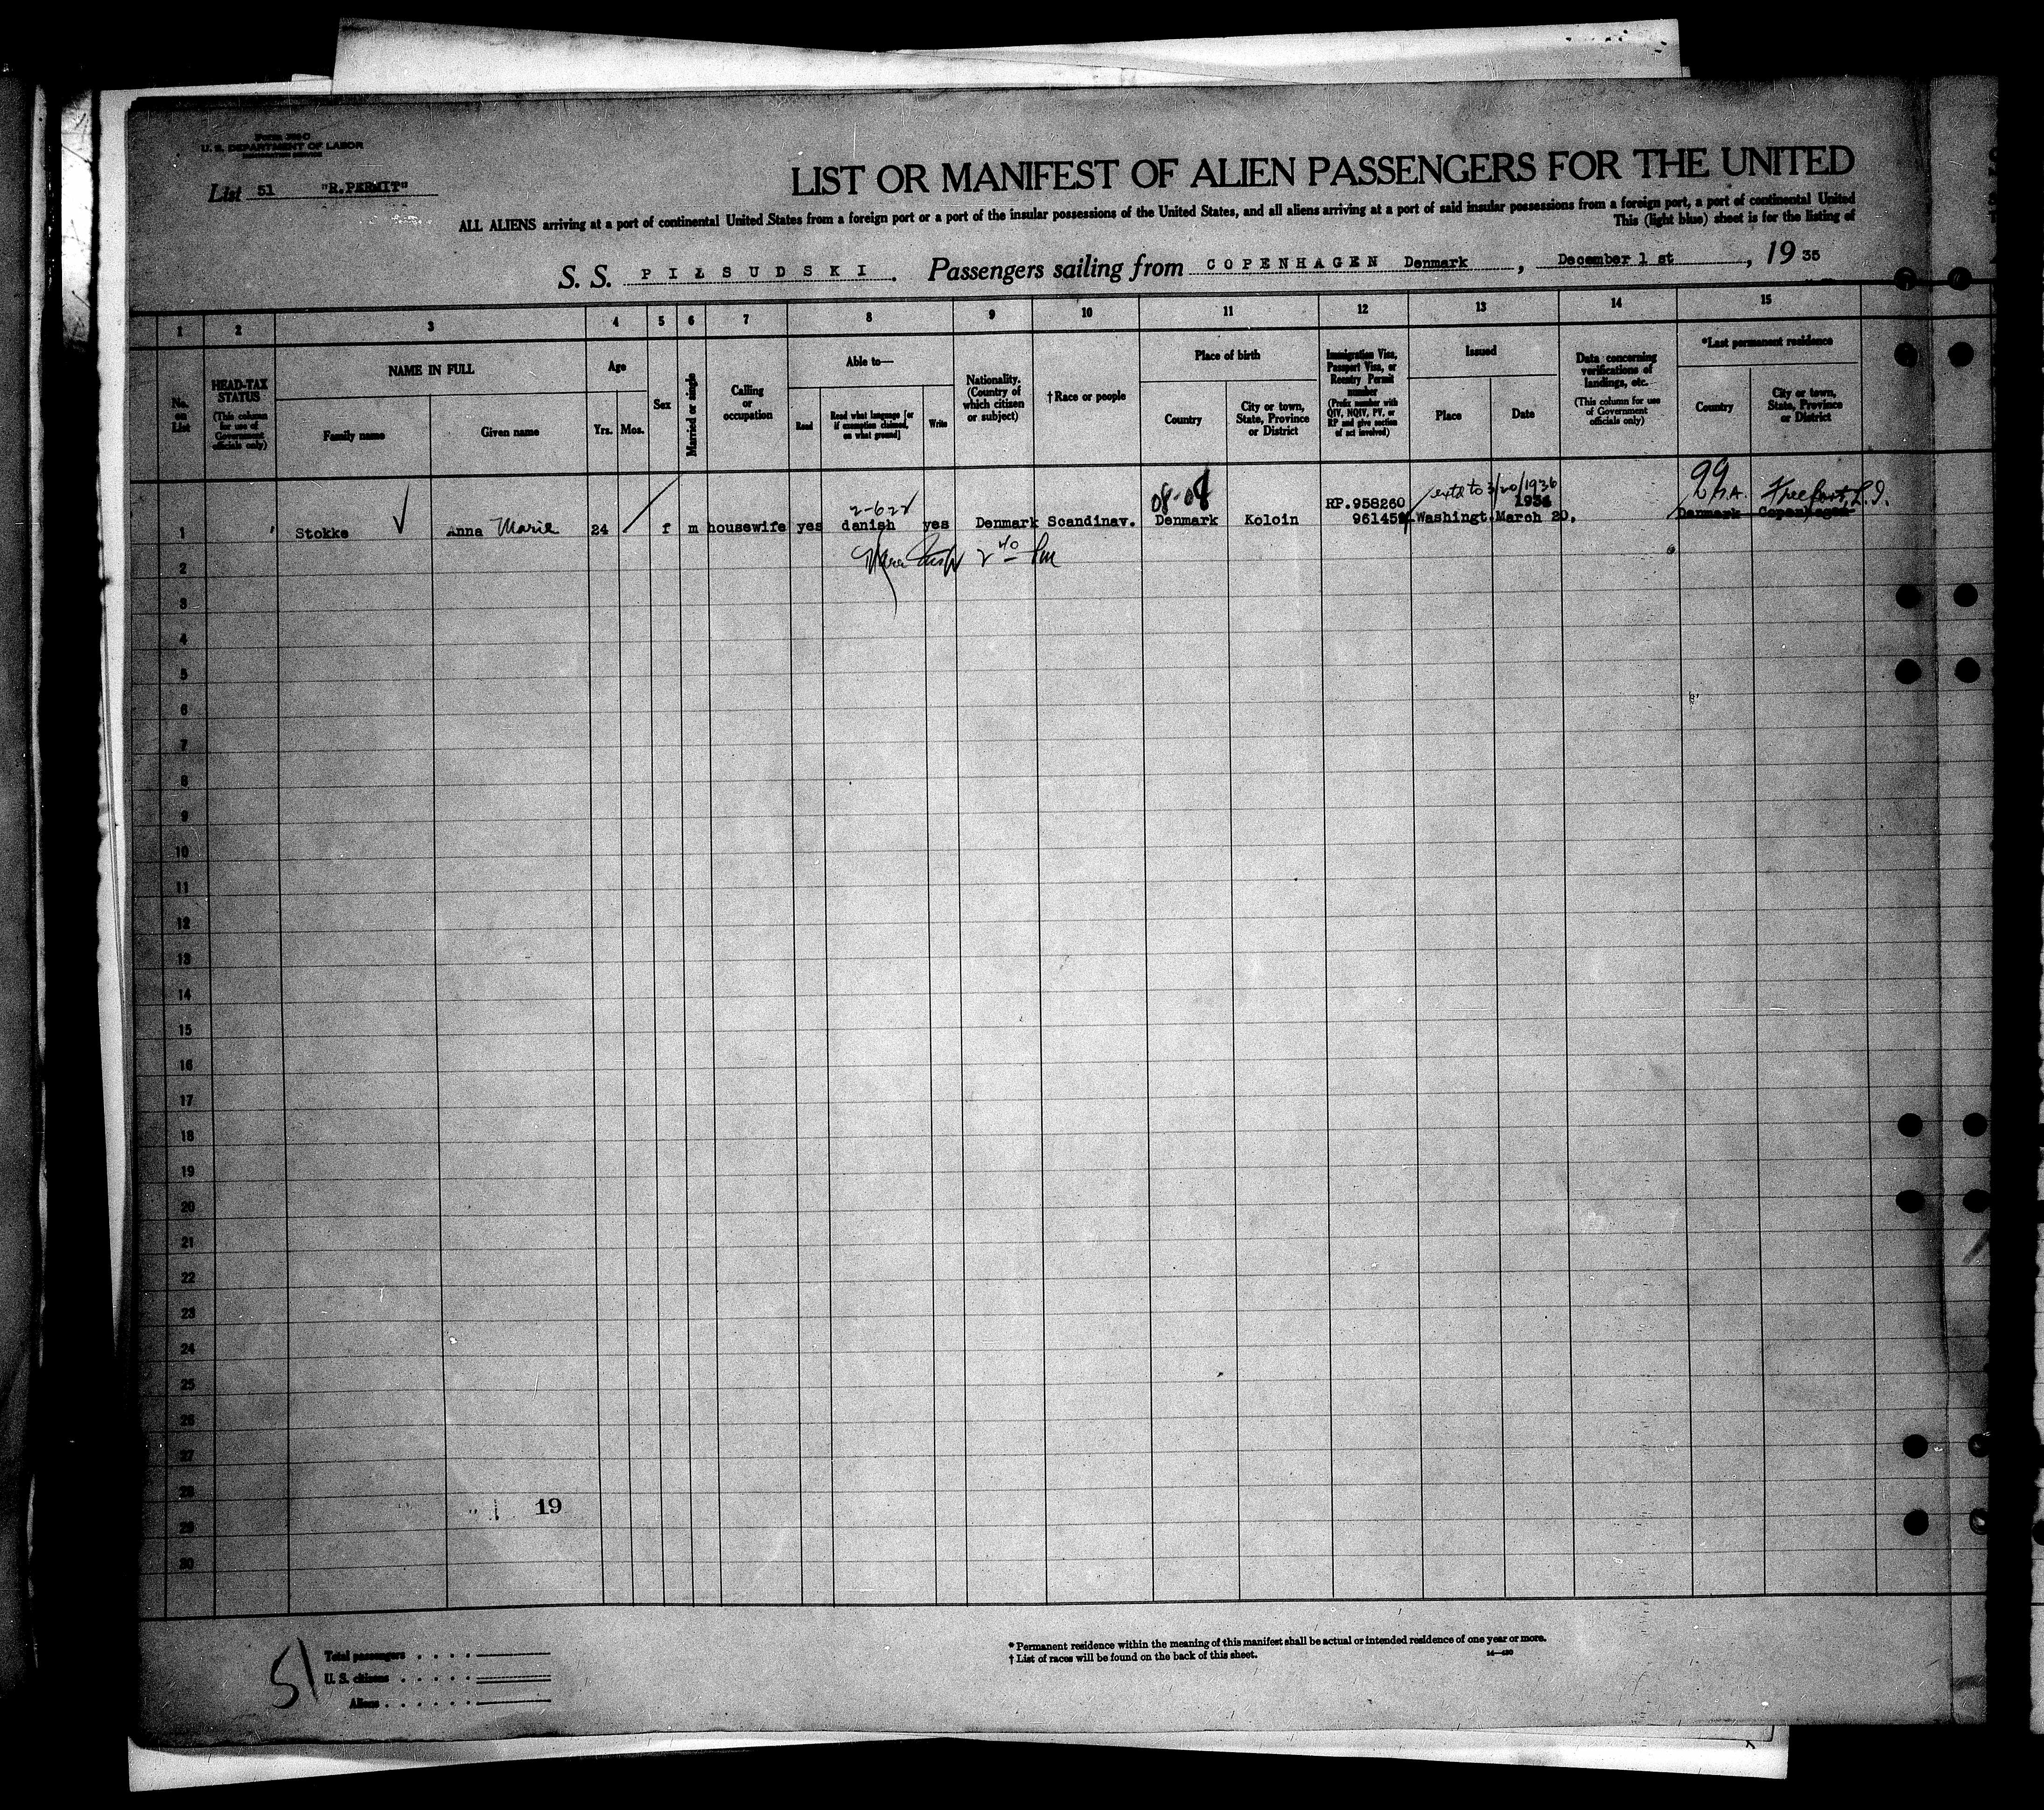 Form 500 C
U. S. DEPARTMENT OF LABOR
IMMIGRATION SERVICE
List 51 "R.PERMIT"
LIST OR MANIFEST OF ALIEN PASSENGERS FOR THE UNITED
ALL ALIENS arriving at a port of continental United States from a foreign port or a port of the insular possessions of the United States, and all aliens arriving at a port of said insular possessions from a foreign port, a port of continental United
This (light blue) sheet is for the listing of
S. S. PIŁSUDSKI. Passengers sailing from COPENHAGEN Denmark, December 1 st, 19 35
1 2 3 4 5 6 7 8 9 10 11 12 13 14 15
No. on List
HEAD-TAX STATUS
(This column for use of Government officials only)
NAME IN FULL
Family name
Given name
Age
Yrs. Mos.
Sex
Married or single
Calling or occupation
Able to—
Read
Read what language [or if exemption claimed, on what ground]
Write
Nationality. (Country of which citizen or subject)
†Race or people
Place of birth
Country
City or town, State, Province or District
Immigration Visa, Passport Visa, or Reentry Permit number
(Prefix number with QIV, NQIV, PV, or RP and give section of act involved)
Issued
Place
Date
Data concerning verifications of landings, etc.
(This column for use of Government officials only)
*Last permanent residence
Country
City or town, State, Province or District
2-622 08-08 RP.958260 extd to 3/20/1936 U.S.A. Freeport, L.I.
1 Stokke Anna Marie 24 f m housewife yes danish yes Denmark Scandinav. Denmark Koloin Washingt. March 20, Denmark Copenhagen
2 2 40 Pm
3
4
5
6
7
8
9
10
11
12
13
14
15
16
17
18
19
20
21
22
23
24
25
26
27
28
19
29
30
51
Total passengers
U. S. citizens
Aliens
* Permanent residence within the meaning of this manifest shall be actual or intended residence of one year or more.
† List of races will be found on the back of this sheet.
14—430